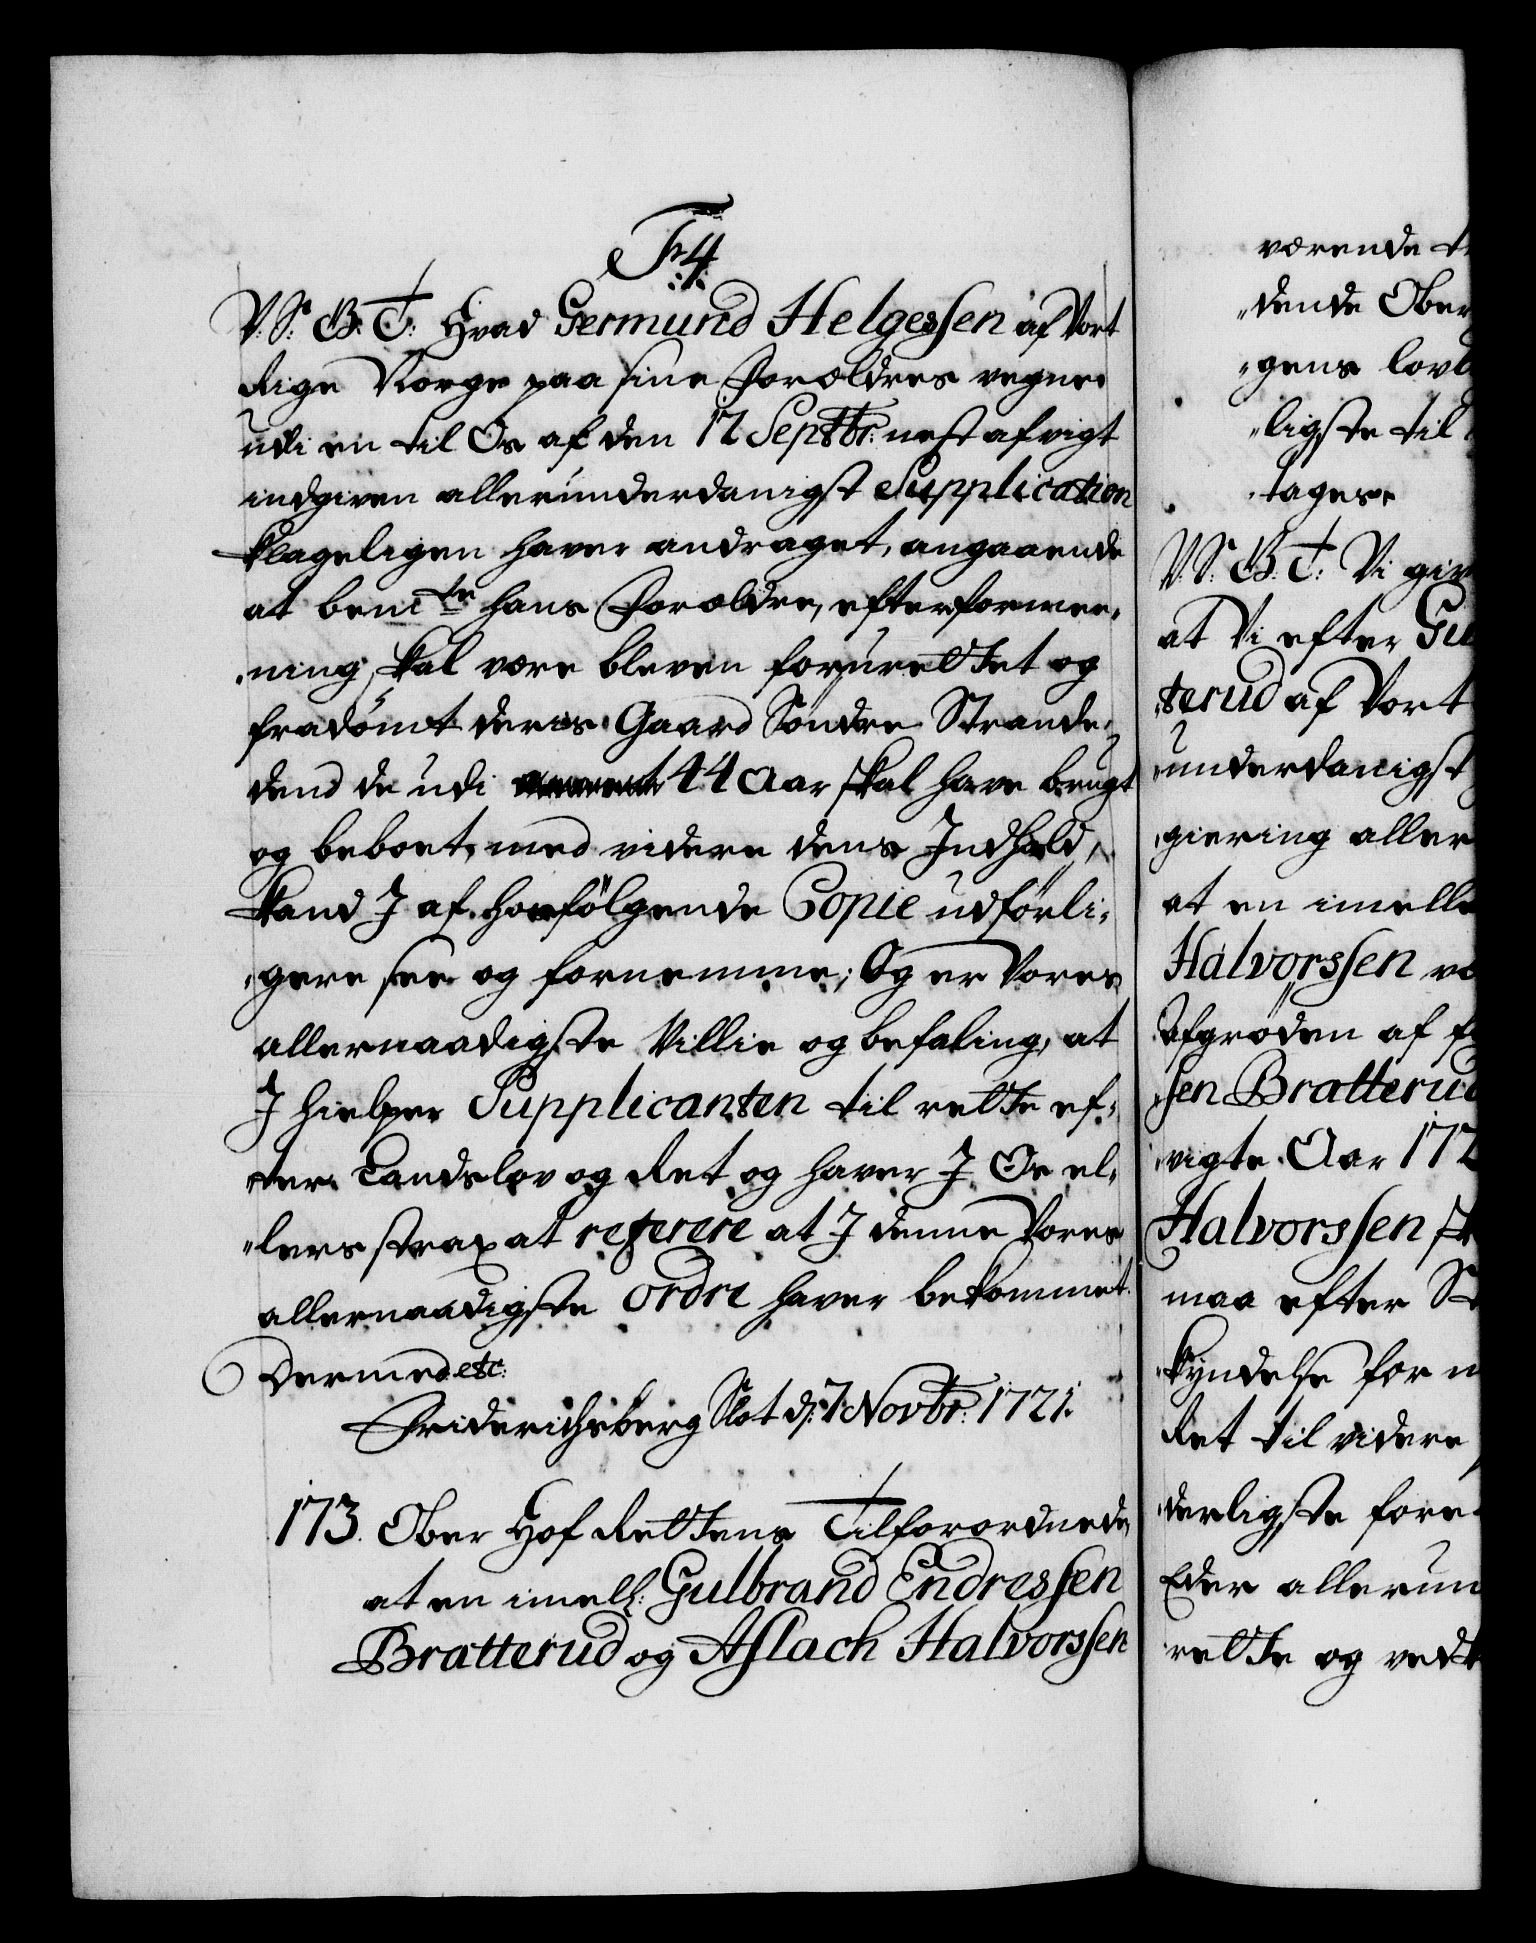 Fr 4
V. S. G. T. Hvad Germund Helgessen af Vort
Rige Norge paa sine Forældres vegne
udi en til Os af den 12 Septbr: nest afvigt
indgiven allerunderdanigst Supplication
klageligen haver andraget, angaaende
at bemte hans Forældre, efter formee,
,ning, skal være bleven forurettet og
fradömt deris Gaard Söndre Strande,
dend de udi 44 Aar skal have brugt
og beboet, med videre dens Indhold,
kand J af hosfölgende Copie udförli,
,gere see og fornemme; Og er Vores
allernaadigste Villie og befaling, at
J hielper Supplicanten til rette ef,
,ter Landslov og Ret og haver J Os el,
,,lers strax at referere at J denne Vores
allernaadigste ordre haver bekommet.
Dermed etc:
Friderichsberg Slot d: 7 Novbr: 1721.
173. Ober Hof Rettens Tilforordnede
at en imell: Gulbrand Endressen
Bratterud og Aslach Halvorssen
værende
,,dende Ober
,,gens lov
,,ligste til
,tages.
V. S. G. T. Vi giv
at Vi efter Gul
,terud af Vort
,underdanigst
,giering aller
at en imelle
Halvorssen
Afgröden af
,sen Bratterud
,vigte Aar 172
Halvorssen
maa efter
,kyndelse for
Ret til videre
,derligste fore
Eder allerun
rette og vedk